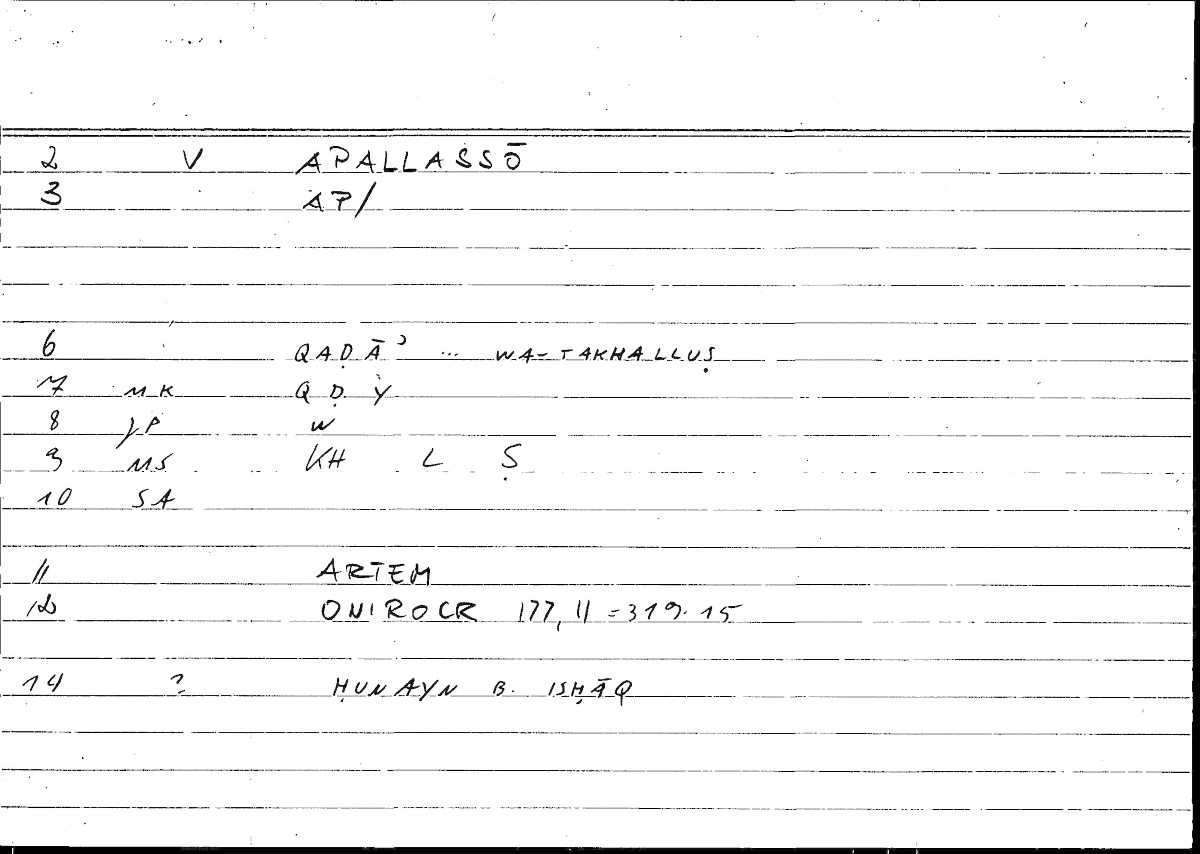 2 V APALLASSŌ
3 AP/
6 QAḌĀʾ ... WA-TAKHALLUṢ
7 MK Q Ḍ Y
8 JP W
9 MS KH L Ṣ
10 SA
11 ARTEM
12 ONIROCR 177, 11 = 319.15
14 ? ḤUNAYN B. ISḤĀQ